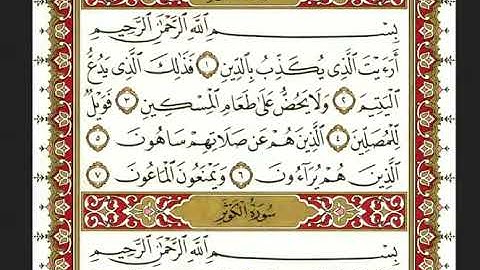 بِسْمِ ٱللَّهِ ٱلرَّحْمَٰنِ ٱلرَّحِيمِ
أَرَءَيْتَ ٱلَّذِى يُكَذِّبُ بِٱلدِّينِ ١ فَذَٰلِكَ ٱلَّذِى يَدُعُّ
ٱلْيَتِيمَ ٢ وَلَا يَحُضُّ عَلَىٰ طَعَامِ ٱلْمِسْكِينِ ٣ فَوَيْلٌ
لِّلْمُصَلِّينَ ٤ ٱلَّذِينَ هُمْ عَن صَلَاتِهِمْ سَاهُونَ ٥
ٱلَّذِينَ هُمْ يُرَآءُونَ ٦ وَيَمْنَعُونَ ٱلْمَاعُونَ ٧
سُورَةُ الْكَوْثَرِ
بِسْمِ ٱللَّهِ ٱلرَّحْمَٰنِ ٱلرَّحِيمِ